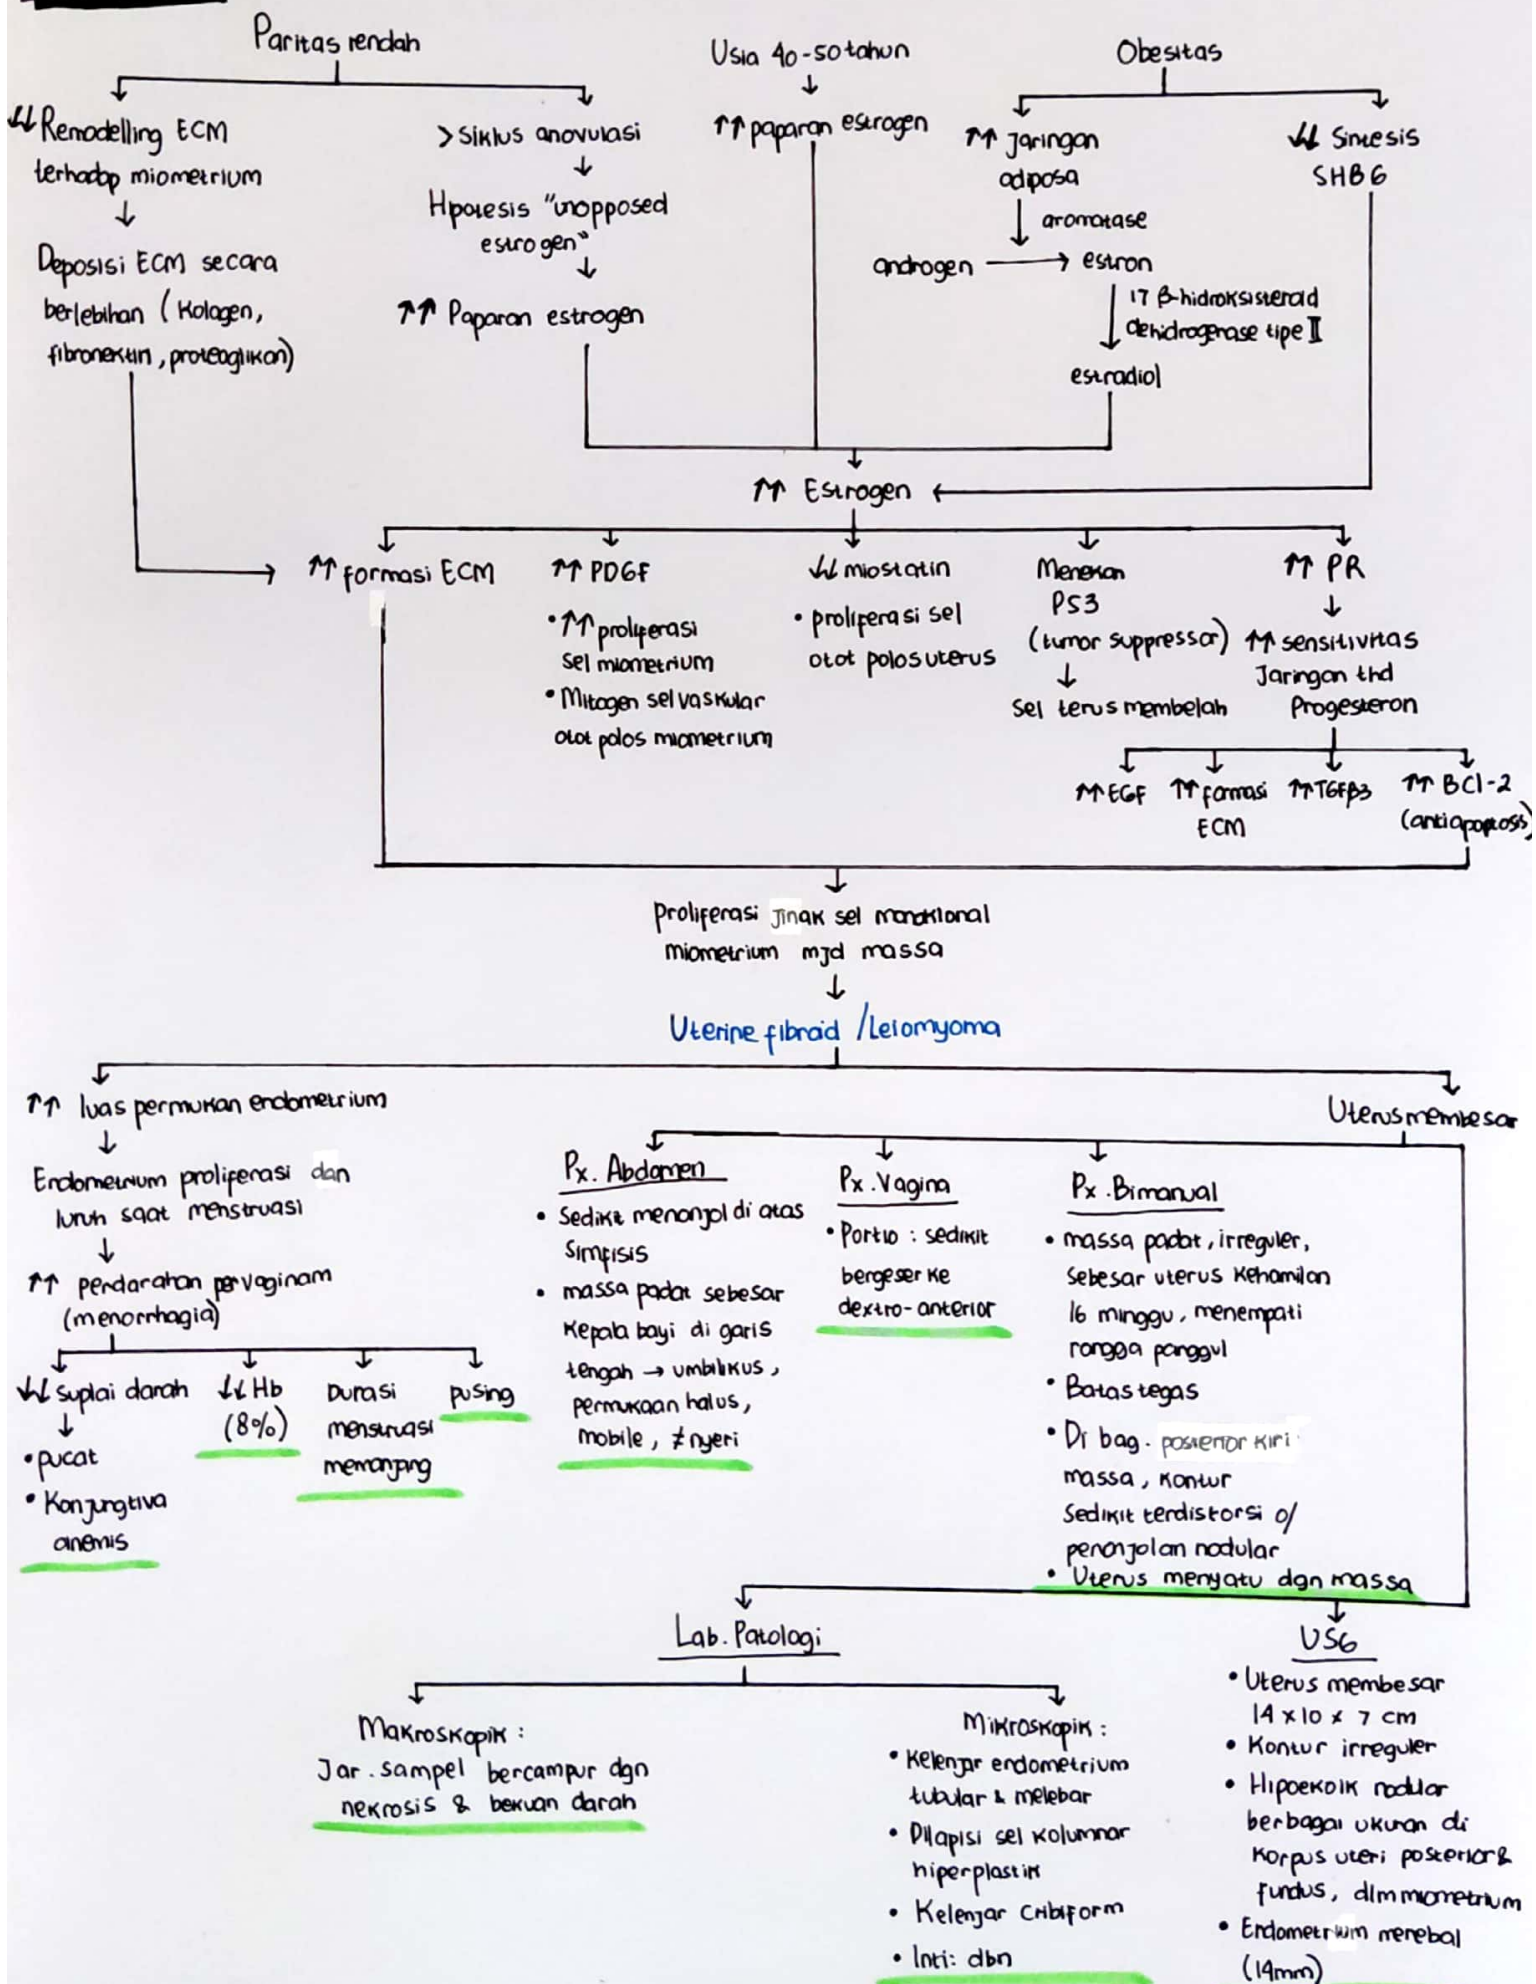 Paritas rendah
↓↓ Remodelling ECM
terhadap miometrium
↓
Deposisi ECM secara
berlebihan (Kolagen,
fibronektin, proteoglikan)
> Siklus anovulasi
↓
Hipotesis "unopposed
estrogen"
↓
↑↑ Paparan estrogen
Usia 40-50 tahun
↓
↑↑ paparan estrogen
Obesitas
↑↑ Jaringan
adiposa
↓ aromatase
androgen → estron
17 β-hidroksisteroid
dehidrogenase tipe II
estradiol
↓↓ Sintesis
SHBG
↑↑ Estrogen
↑↑ formasi ECM
↑↑ PDGF
• ↑↑ proliferasi
sel miometrium
• Mitogen sel vaskular
otot polos miometrium
↓↓ miostatin
• proliferasi sel
otot polos uterus
Menekan
P53
(tumor suppressor)
↓
Sel terus membelah
↑↑ PR
↓
↑↑ sensitivitas
Jaringan thd
Progesteron
↑↑ EGF
↑↑ formasi
ECM
↑↑ TGFβ3
↑↑ BCl-2
(antiapoptosis)
Proliferasi Jinak sel monoklonal
miometrium mjd massa
↓
Uterine fibroid / Leiomyoma
↑↑ luas permukan endometrium
↓
Endometrium proliferasi dan
luruh saat menstruasi
↓
↑↑ perdarahan pervaginam
(menorrhagia)
↓↓ suplai darah
↓
• pucat
• Konjungtiva
anemis
↓↓ Hb
(8%)
Durasi
menstruasi
memanjang
pusing
Uterus membesar
Px. Abdomen
• Sedikit menonjol di atas
Simfisis
• massa padat sebesar
kepala bayi di garis
tengah → umbilikus,
permukaan halus,
mobile, ≠ nyeri
Px. Vagina
• Portio : sedikit
bergeser ke
dextro-anterior
Px. Bimanual
• massa padat, irreguler,
Sebesar uterus kehamilan
16 minggu, menempati
rongga panggul
• Batas tegas
• Di bag. posterior kiri
massa, kontur
Sedikit terdistorsi o/
penonjolan nodular
• Uterus menyatu dgn massa
Lab. Patologi
Makroskopik :
Jar. sampel bercampur dgn
nekrosis & bekuan darah
Mikroskopik :
• Kelenjar endometrium
tubular & melebar
• Dilapisi sel kolumnar
hiperplastik
• Kelenjar Cribiform
• Inti: dbn
USG
• Uterus membesar
14 x 10 x 7 cm
• Kontur irreguler
• Hipoekoik nodular
berbagai ukuran di
korpus uteri posterior &
fundus, dlm miometrium
• Endometrium menebal
(14mm)